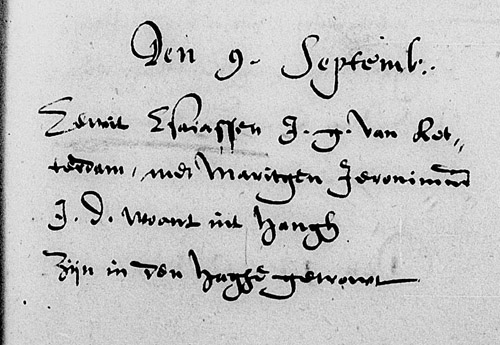 Den 9. Septemb.
Gerrit Esaiassen J. g. van Rot-
terdam, met Maritgen Jeronimus
J. d. woont int Hangh
Zijn in den Haghe getrowt